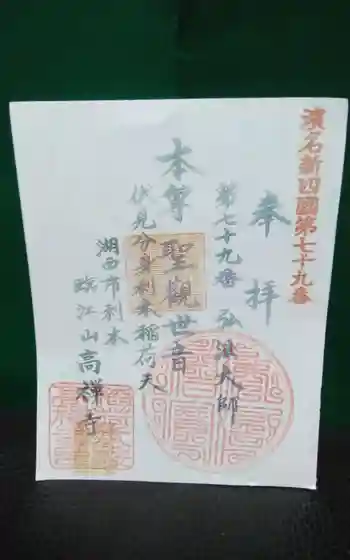 濱名新四國第七十九番
奉拝
第七十九番 弘法大師
本尊 聖觀世音
伏見分身利木稲荷天
湖西市利木
臨江山高禅寺